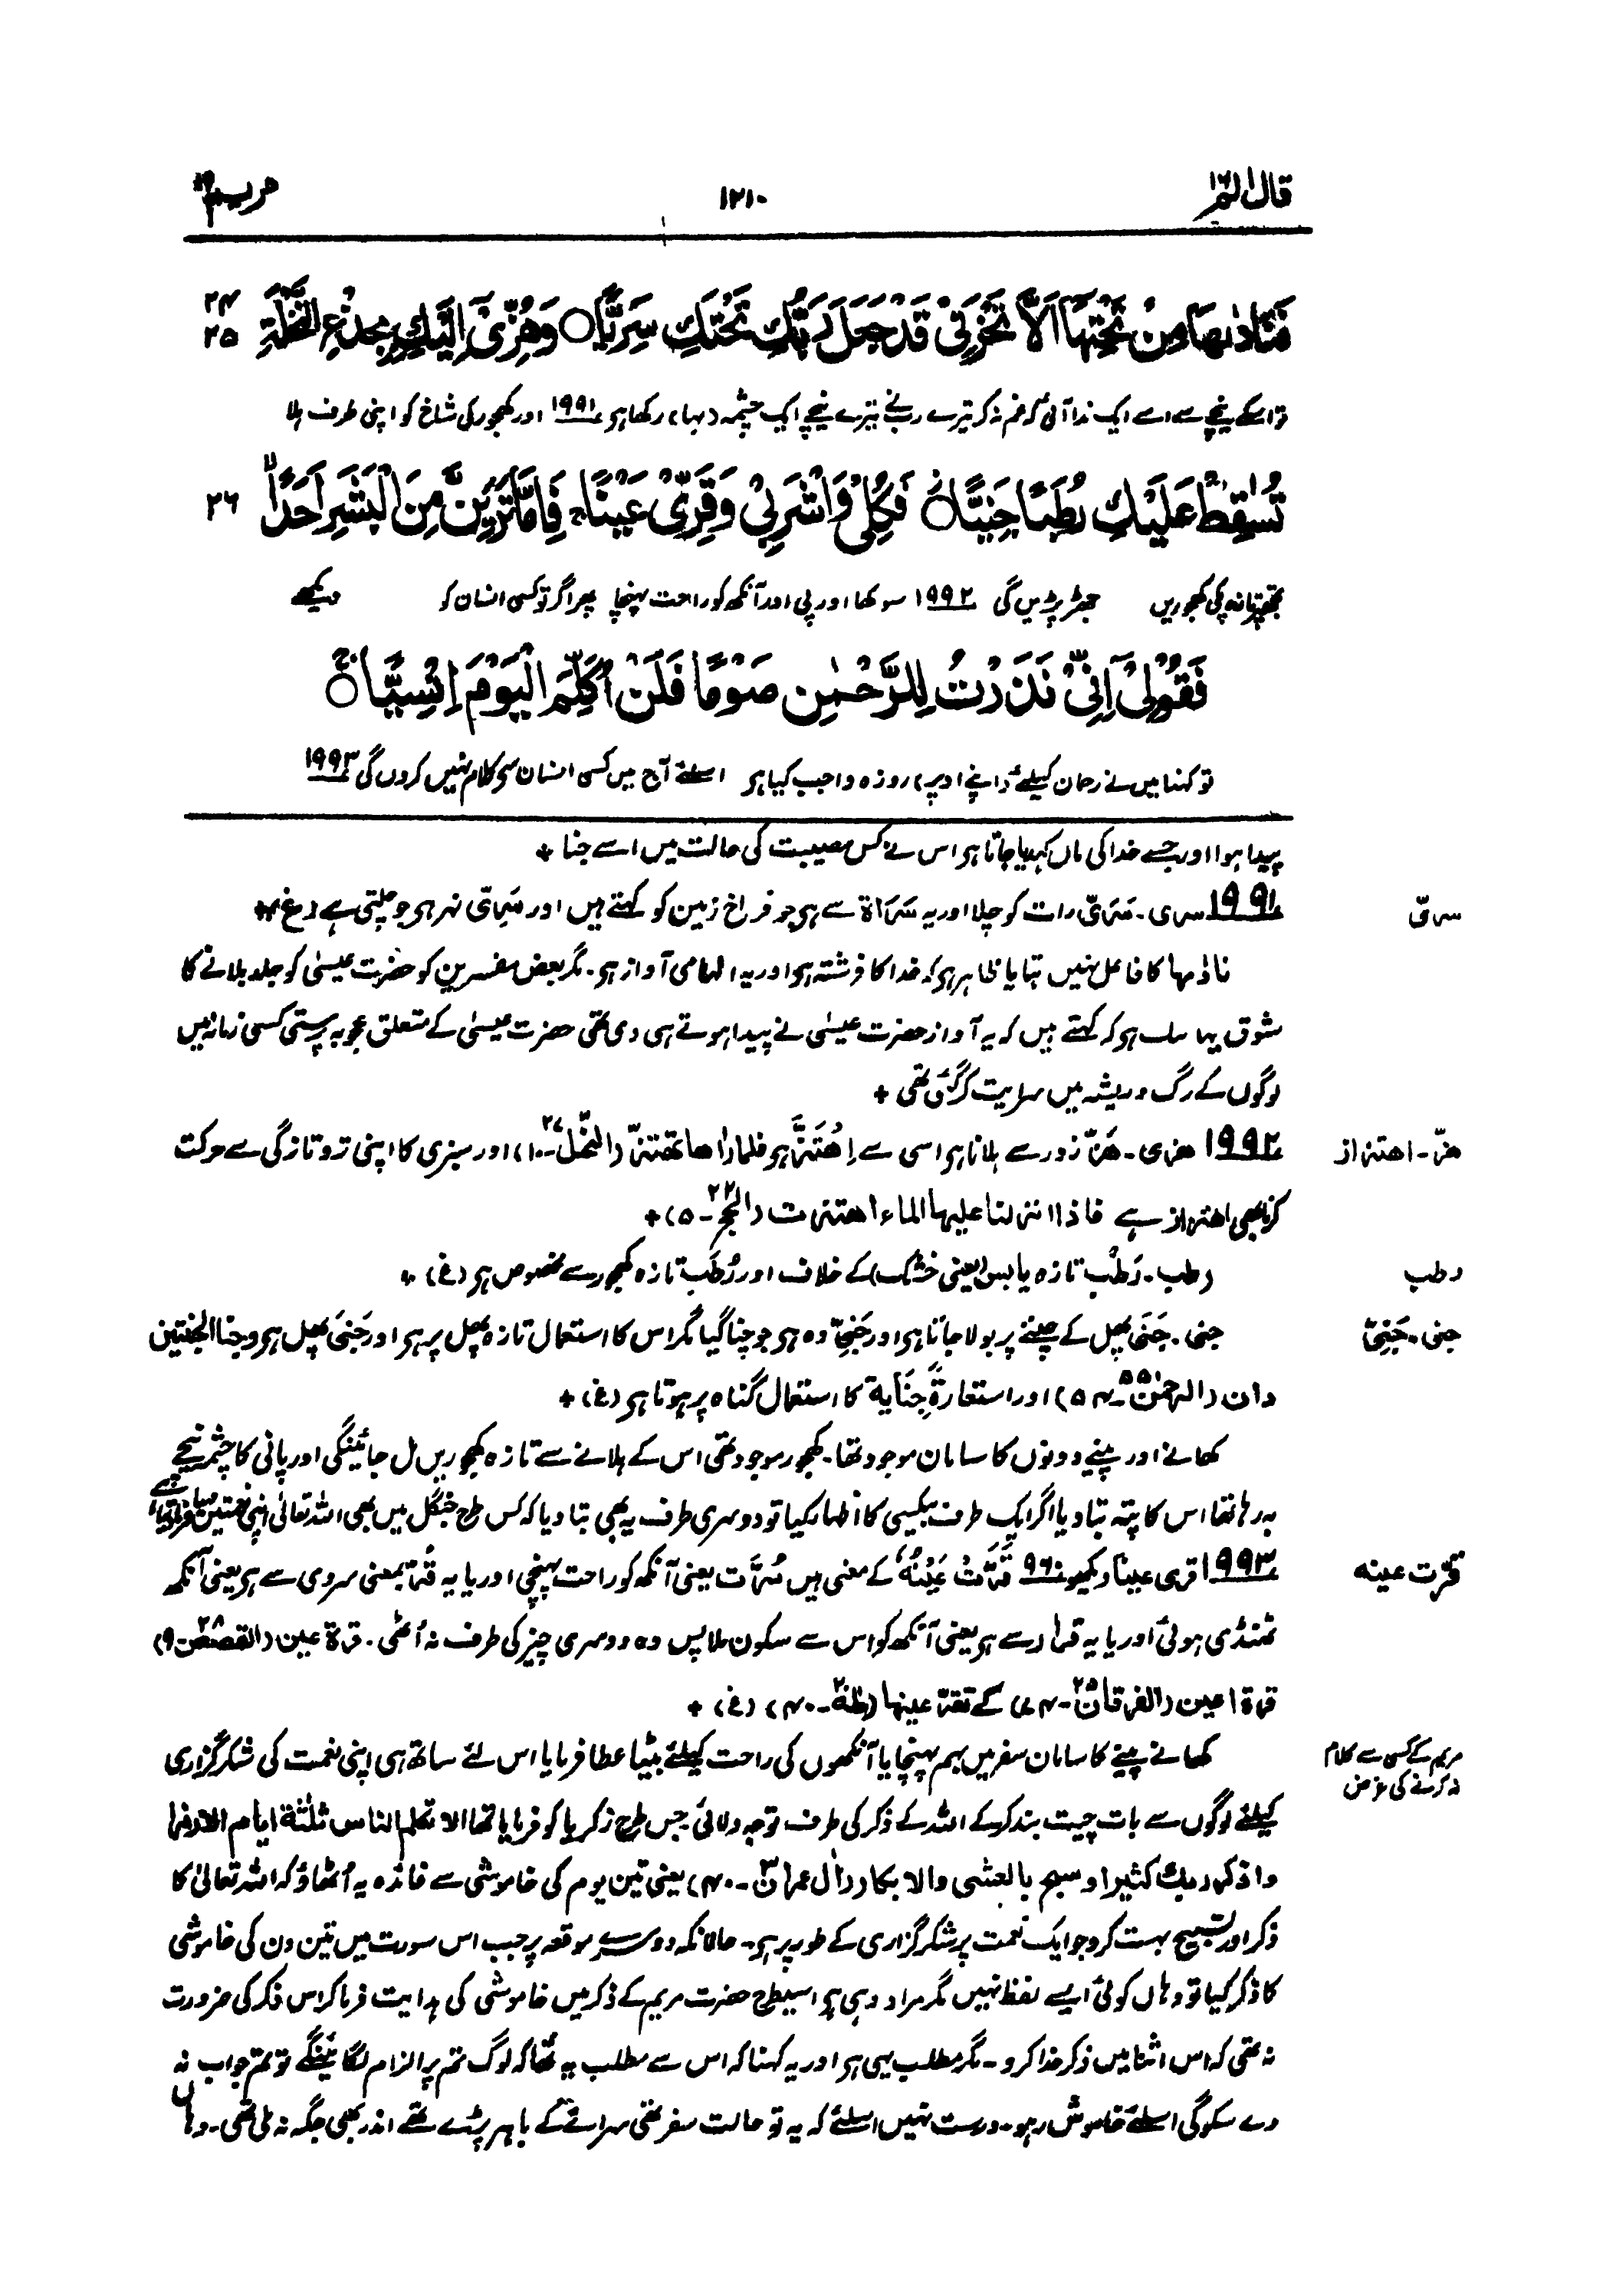 قال الم ۱۶
۱۲۱۰
مریم ۱۹
فَنَادٰىهَا مِنْ تَحْتِهَآ اَلَّا تَحْزَنِيْ قَدْ جَعَلَ رَبُّكِ تَحْتَكِ سَرِيًّا ○ وَهُزِّيْٓ اِلَيْكِ بِجِذْعِ النَّخْلَةِ ۲۴ ۲۵
تو اسکے نیچے سے اسے ایک ندا آئی کہ غم نہ کر تیرے رب نے تیرے نیچے ایک چشمہ (بہا) رکھا ہو ۱۹۹۱ اور کھجور کی شاخ کو اپنی طرف ہلا
تُسٰقِطْ عَلَيْكِ رُطَبًا جَنِيًّا ○ فَكُلِيْ وَاشْرَبِيْ وَقَرِّيْ عَيْنًا ۚ فَاِمَّا تَرَيِنَّ مِنَ الْبَشَرِ اَحَدًا ۙ ۲۶
تجھپر تازہ پکی کھجوریں جھڑ پڑیں گی ۱۹۹۲ سو کھا اور پی اور آنکھ کو راحت پہنچا پھر اگر تو کسی انسان کو دیکھے
فَقُوْلِيْٓ اِنِّيْ نَذَرْتُ لِلرَّحْمٰنِ صَوْمًا فَلَنْ اُكَلِّمَ الْيَوْمَ اِنْسِيًّا ○
تو کہنا میں نے رحمان کیلئے (اپنے اوپر) روزہ واجب کیا ہو اسلئے آج میں کسی انسان سے کلام نہیں کروں گی ۱۹۹۳
پیدا ہوا اور جسے خدا کی ماں کہدیا جاتا ہو اس نے کس مصیبت کی حالت میں اسے جنا +
سریّ
۱۹۹۱ سری۔ سَرَیّ رات کو چلا اور یہ سَرَاۃ سے ہو جو فراخ زمین کو کہتے ہیں اور سَرِیّ نہر ہو جو چلتی ہے (غ) +
نادٰىھا کا فاعل نہیں بتایا ظاہر ہو کہ خدا کا فرشتہ ہو اور یہ الہامی آواز ہو۔ مگر بعض مفسرین کو حضرت عیسیٰ کو جلد بلانے کا
شوق یہاں تک ہو کہ کہتے ہیں کہ یہ آواز حضرت عیسیٰ نے پیدا ہوتے ہی دی تھی حضرت عیسیٰ کے متعلق عجوبہ پرستی کسی زمانہ میں
لوگوں کے رگ و ریشہ میں سرایت کر گئی تھی +
ھزّ۔ اھتزاز
۱۹۹۲ ھزی۔ ھَزّ زور سے ہلانا ہو اسی سے اِھْتَزَّ ہو فلما راٰھا تھتزّ (النمل ۲۷۔۱۰) اور سبزی کا اپنی تروتازگی سے حرکت
کرنا بھی اھتزاز ہے فاذا انزلنا علیھا الماء اھتزت (الحج ۲۲۔۵) +
رطب
رطب۔ رَطْب تازہ یابس (یعنی خشک) کے خلاف اور رُطَب تازہ کھجور سے مخصوص ہو (غ) +
جنی۔ جَنِیّ
جنی۔ جَنَی پھل کے چننے پر بولا جاتا ہو اور جَنِیّ وہ ہو جو چنا گیا مگر اس کا استعمال تازہ پھل پر ہو اور جَنیٰ پھل ہو وجنا الجنتین
دان (الرحمٰن ۵۵۔۵۴) اور استعارۃً جِنَایۃ کا استعمال گناہ پر ہوتا ہو (غ) +
کھانے اور پینے دونوں کا سامان موجود تھا۔ کھجور موجود تھی اس کے ہلانے سے تازہ کھجوریں مل جائینگی اور پانی کا چشمہ نیچے
بہ رہا تھا اس کا پتہ بتا دیا اگر ایک طرف بیکسی کا اظہار کیا تو دوسری طرف یہ بھی بتا دیا کہ کس طرح جنگل میں بھی اللہ تعالیٰ اپنی نعمتیں مہیا فرماتا ہے
قرّت عینہ
۱۹۹۳ قری عینا دیکھو ۹۶ قَرَّتْ عَیْنُہٗ کے معنی ہیں سُرَّت یعنی آنکھ کو راحت پہنچی اور یا یہ قُرّ بمعنی سردی سے ہو یعنی آنکھ
ٹھنڈی ہوئی اور یا یہ قرار سے ہو یعنی آنکھ کو اس سے سکون ملا پس وہ دوسری چیز کی طرف نہ اُٹھی۔ قرۃ عین (القصص ۲۸۔۹)
قرۃ اعین (الفرقان ۲۵۔۷۴) کے تقرّ عینھا (طٰہٰ ۲۰۔۴۰) (غ) +
مریم کے کسی سے کلام
نہ کرنے کی غرض
کھانے پینے کا سامان سفر میں بہم پہنچایا آنکھوں کی راحت کیلئے بیٹا عطا فرمایا اس لئے ساتھ ہی اپنی نعمت کی شکر گزاری
کیلئے لوگوں سے بات چیت بند کرکے اللہ کے ذکر کی طرف توجہ دلائی جس طرح زکریا کو فرمایا تھا الا تکلم الناس ثلٰثۃ ایام الا رمزا
واذکر ربک کثیرا وسبح بالعشی والابکار (اٰل عمران ۳۔۴۰) یعنی تین یوم کی خاموشی سے فائدہ یہ اُٹھاؤ کہ اللہ تعالیٰ کا
ذکر اور تسبیح بہت کرو جو ایک نعمت پر شکر گزاری کے طور پر ہو۔ حالانکہ دوسرے موقعہ پر جب اس سورت میں تین دن کی خاموشی
کا ذکر کیا تو وہاں کوئی ایسے لفظ نہیں مگر مراد وہی ہو اسیطرح حضرت مریم کے ذکر میں خاموشی کی ہدایت فرما کر اس ذکر کی ضرورت
نہ تھی کہ اس اثنا میں ذکر خدا کرو۔ مگر مطلب یہی ہو اور یہ کہنا کہ اس سے مطلب یہ تھا کہ لوگ تم پر الزام لگائینگے تو تم جواب نہ
دے سکوگی اسلئے خاموش رہو۔ درست نہیں اسلئے کہ یہ تو حالت سفر تھی سرائے کے باہر پڑے تھے اندر بھی جگہ نہ ملی تھی۔ وہاں